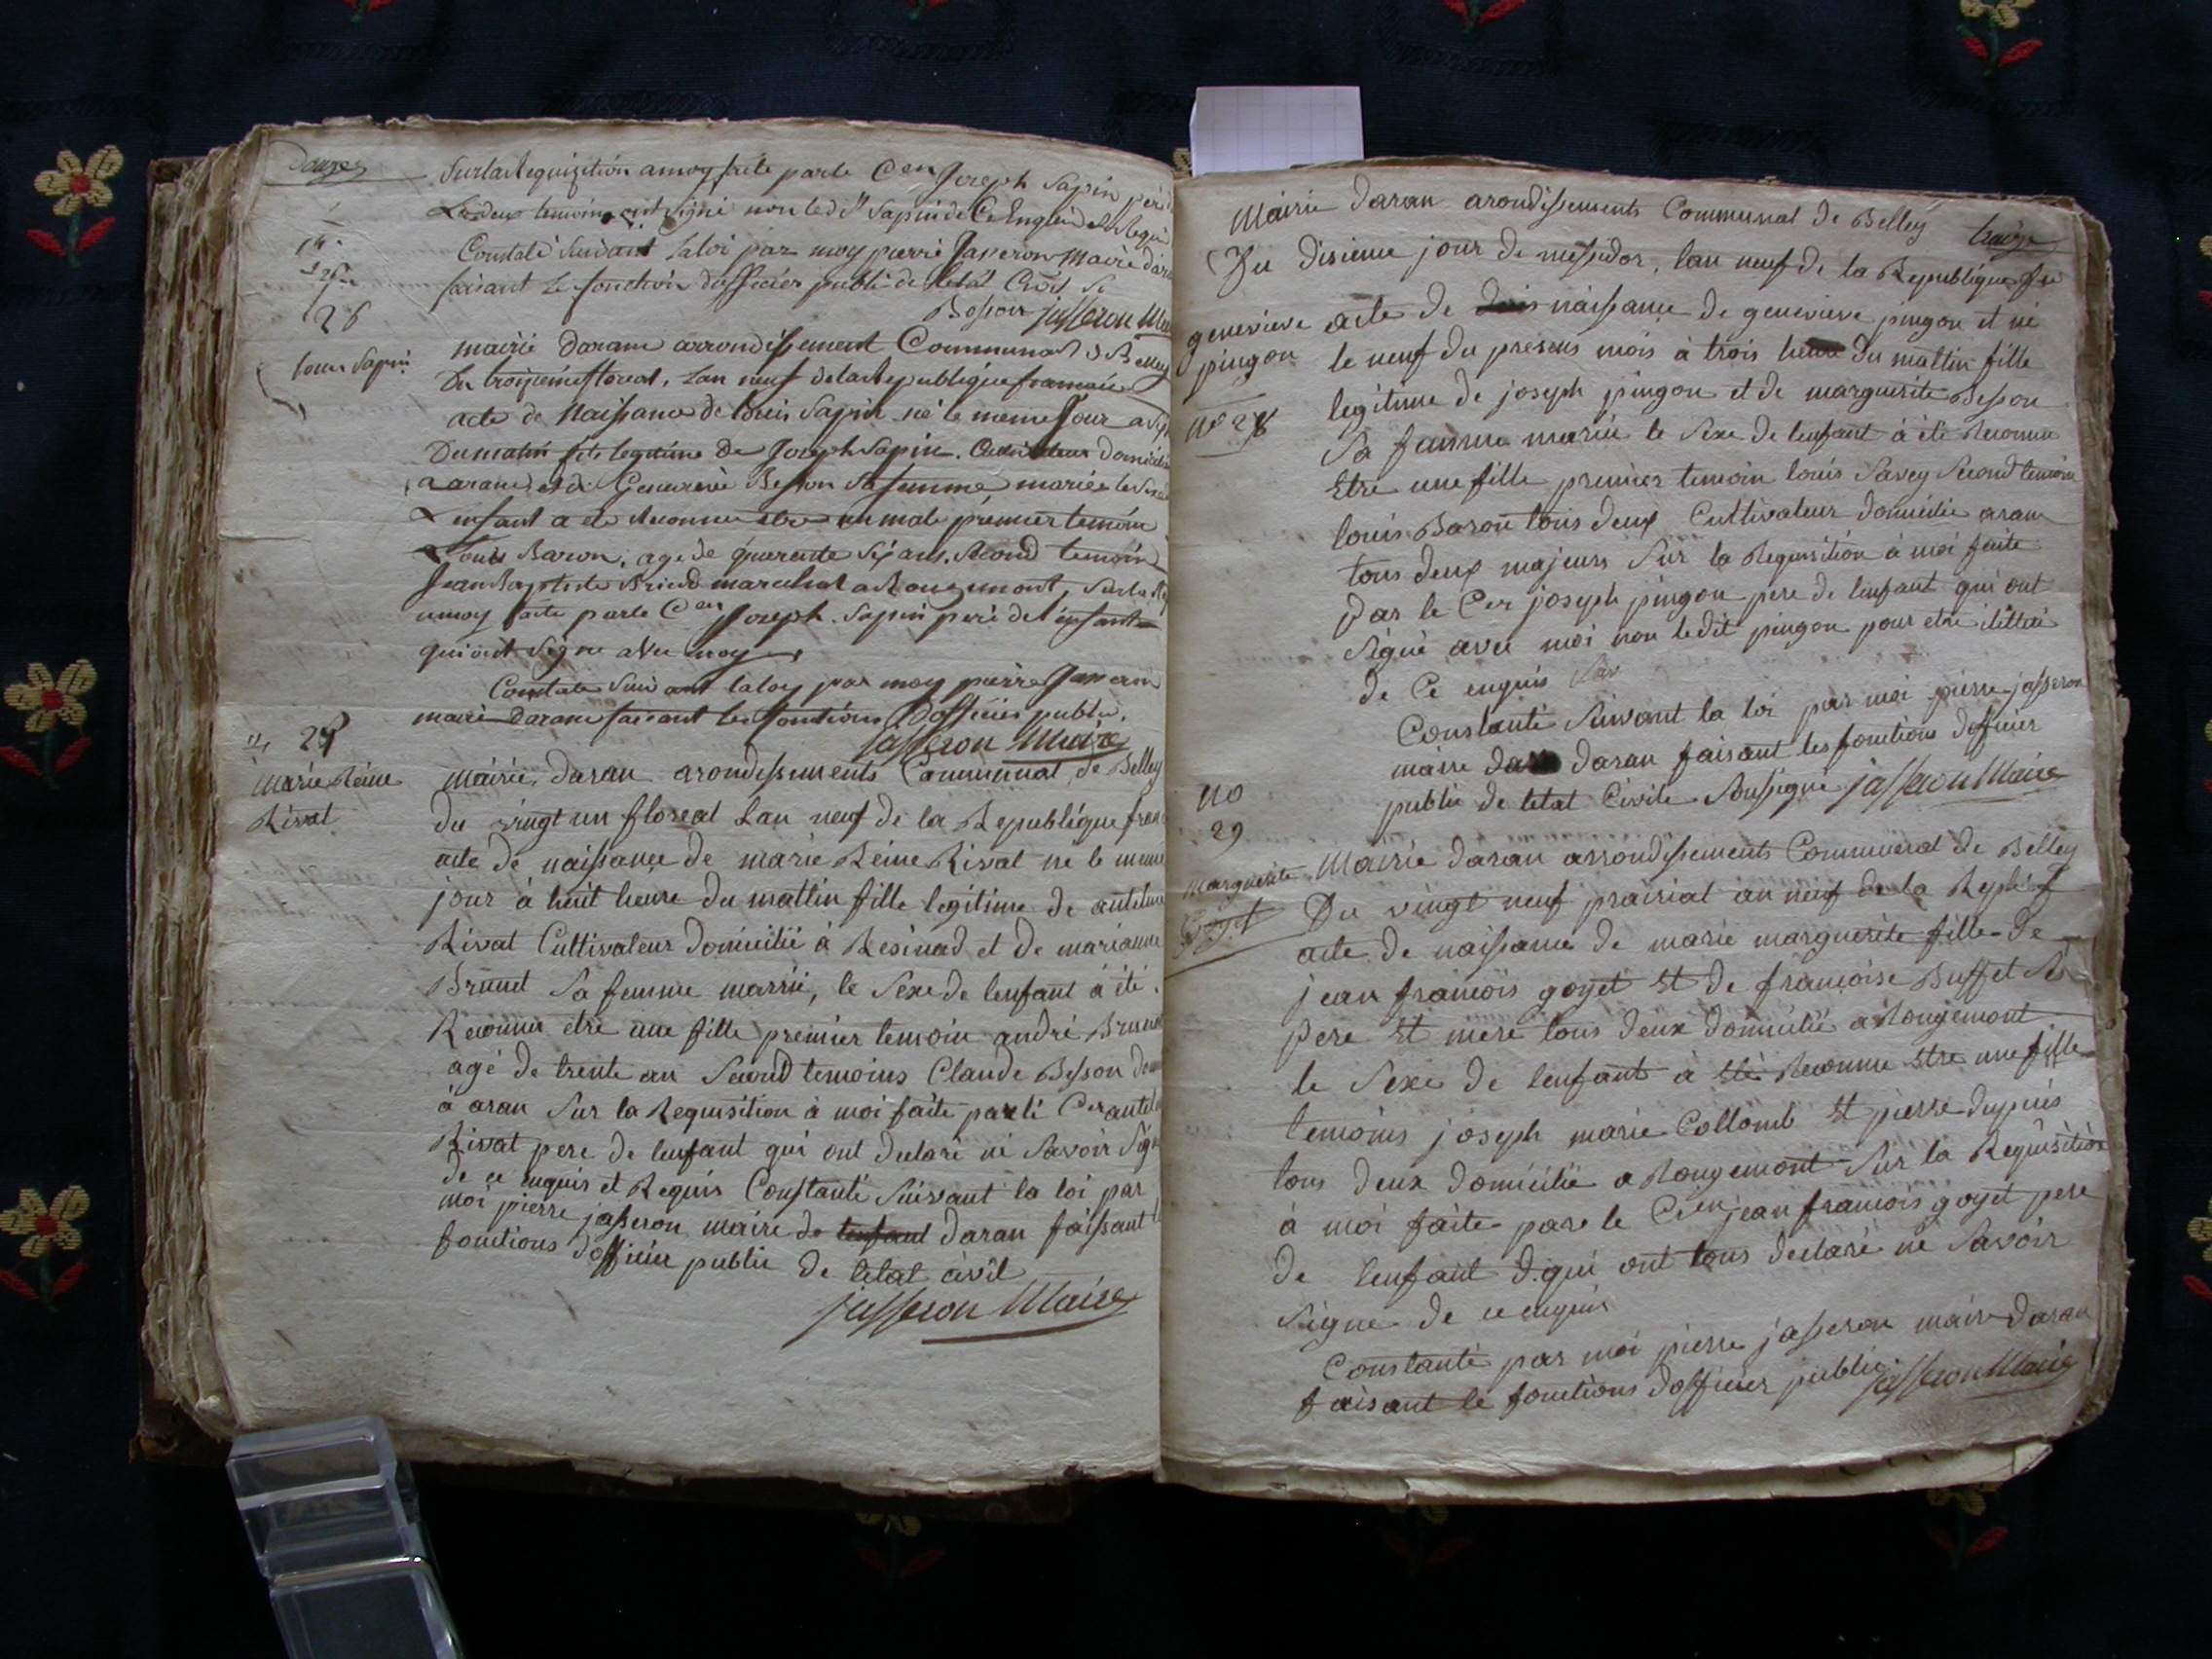 Douzes
Sur la Requizition a moy faite par le Cen Joseph Sapin père
Les deux temoins ont signé non le dt Sapin de Ce Enquis et Requis
Constaté Suivant La loi par moy pierre Jasseron Maire d'ara
faisant Le fonction d'officier public de l'état Civil
Besson jasseron Maire
26
louis Sapin
mairie Daranc arrondissement Communal de Belley
Du troisieme floreal, Lan neuf de la Republique francaise
acte de Naissance de louis Sapin né le meme Jour a Sept
Du matin fils legitime De Joseph Sapin. Cultivateur Domicilié
a aranc et de Genevieve Besson Sa femme mariée le Sexe
L'enfant a été Reconnu etre un male premier temoin
Louis Baron, age de quarente Six ans, Second temoin
Jean Baptiste Briord marechal a Rougemont, Sur la Req
a moy faite par le Cen Joseph Sapin peré de l'enfant
qui ont Signé avec moy
Constaté Suivant la loy par moy pierre Jasseron
maire Daranc faisant les fonctions D'officier public.
jasseron Maire
27
Marie Reine
Rival
Mairie, daran arondissements Communal de Belley
du vingt un floreal Lan neuf de la Republique fran
acte de naissance de marie Reine Rival né le meme
jour à huit heure du mattin fille legitime de antelme
Rival Cultivateur Domicilié à Resinod et de marianne
Brunet Sa femme marrié, le Sexe de lenfant à été
Reconnu etre une fille premier temoin andré Brunet
agé de trente an Second temoins Claude Besson dem
à aran Sur la Requisition à moi faite par le Cen antel
Rival pere de lenfant qui ont declaré ne Savoir Signe
de ce enquis et Requis Constanté Suivant la loi par
moi pierre jasseron maire de lenfant daran faissant l
fonctions dofficier public de letat civil
jasseron Maire
Mairie daran arondissements Communal de Belley treize
Du disieme jour de messidor, lan neuf de la Republique fr
genevieve
pingon
no 28
acte de naissance de genevieve pingon et né
le neuf du presens mois à trois heure du mattin fille
legitime de joseph pingon et de marguerite Besson
Sa famme mariée le Sexe de lenfant à été Reconnu
Etre une fille premier temoin louis Savey Second temoin
louis Baron tous deux Cultivateur domicilié aran
tous deux majeurs Sur la Requisition à moi faite
par le Cen joseph pingon pere de lenfant qui ont
Signé avec moi non ledit pingon pour etre ilittré
de Ce enquis
Constanté Suivant la loi par moi pierre jasseron
maire daran faisant les fonctions dofficier
public de letat Civile Soussigné jasseron Maire
no
29
Marguerite
Goyet
Mairie daran arrondissements Communal de Belley
Du vingt neuf prairial an neuf de la Rep f
acte de naissance de marie marguerite fille de
jean francois goyet Et de françoise Buffet Ses
pere Et mere tous deux domicilié a Rougemont
le Sexe de lenfant à été Reconnu Etre une fille
temoins joseph marie Collomb Et pierre dupuis
tous deux domicilié a Rougemont Sur la Requisition
à moi faite par le Cen jean francois goyet pere
de lenfant qui ont tous declaré ne Savoir
Signe de ce enquis
Constanté par moi pierre jasseron maire daran
faisant le fonctions dofficier public jasseron Maire